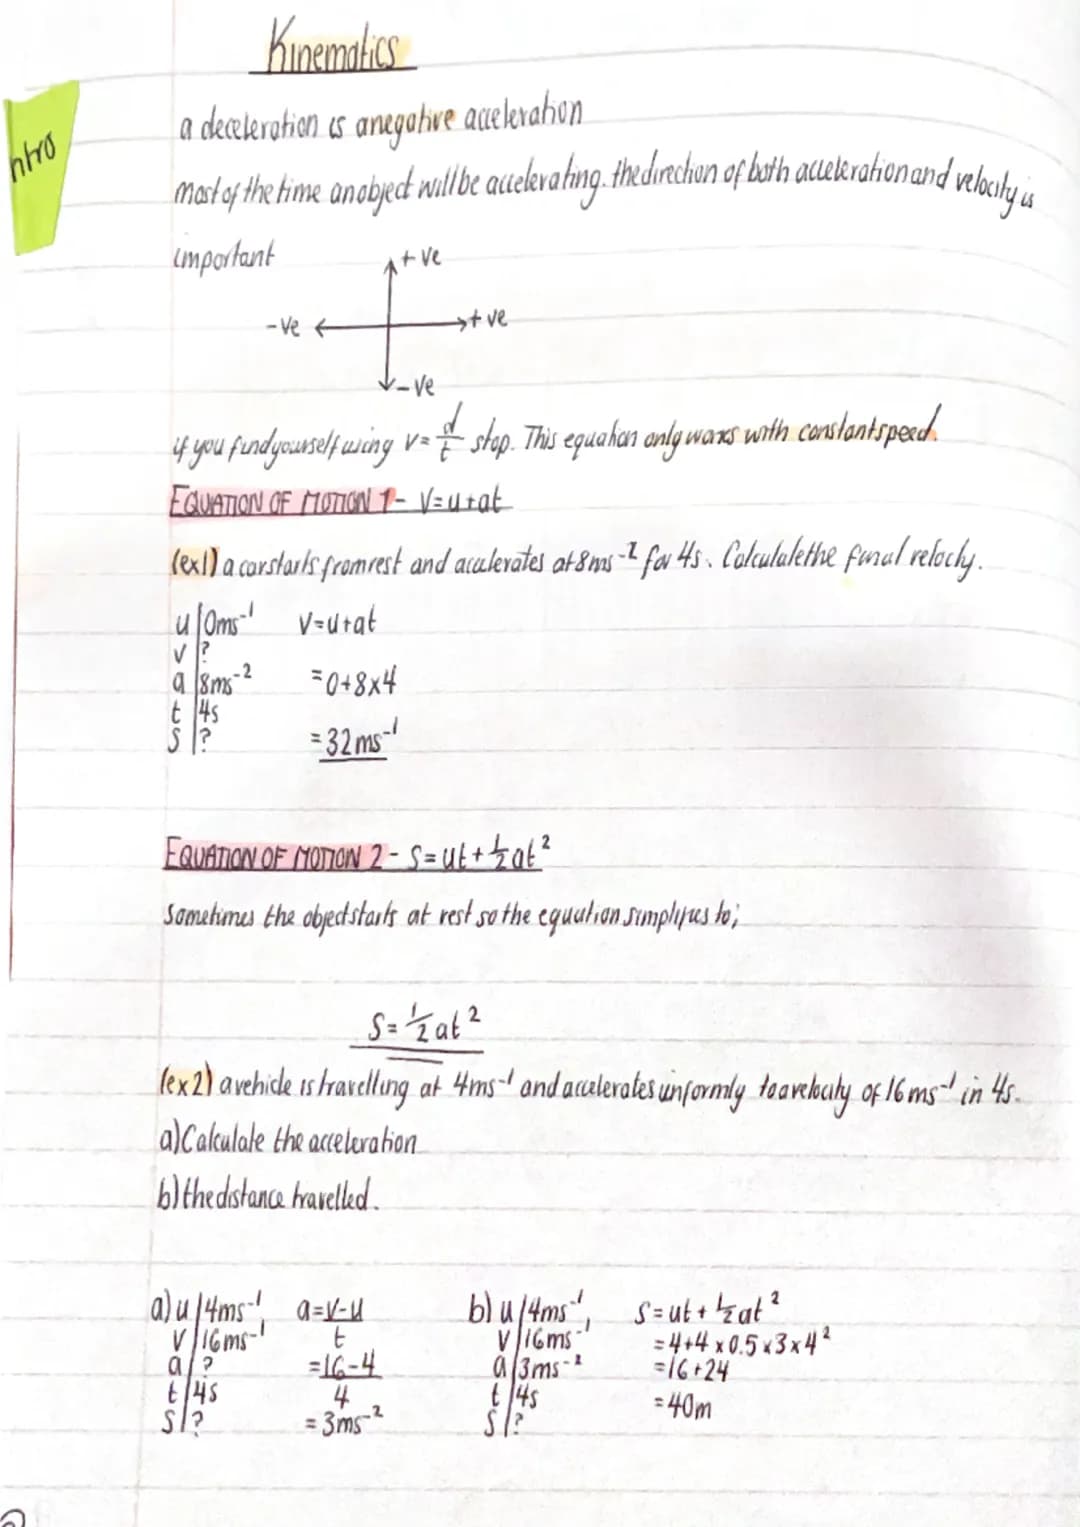 Kinematics
ntro
a deceleration is a negative acceleration
most of the time an object will be accelerating. the direction of both acceleration and velocity is
important
+ve
-ve +ve
-ve
if you find yourself using v=d/t stop. This equation only works with constant speed.
EQUATION OF MOTION 1- V=u+at
(ex1) a car starts from rest and accelerates at 8ms-2 for 4s. Calculate the final velocity.
u | 0ms-1 V=u+at
v | ?
a | 8ms-2 =0+8×4
t | 4s
s | ? =32ms-1
EQUATION OF MOTION 2- S=ut+½at²
Sometimes the object starts at rest so the equation simplifies to;
S=½at²
(ex2) a vehicle is travelling at 4ms-1 and accelerates unformly to a velocity of 16ms-1 in 4s.
a) Calculate the acceleration
b) the distance travelled.
a) u | 4ms-1, a=v-u
v | 16ms-1 t
a | ? =16-4
t | 4s 4
s | ? =3ms-2
b) u | 4ms-1, S=ut+½at²
v | 16ms-1 =4+4×0.5×3×4²
a | 3ms-2 =16+24
t | 4s =40m
s | ?